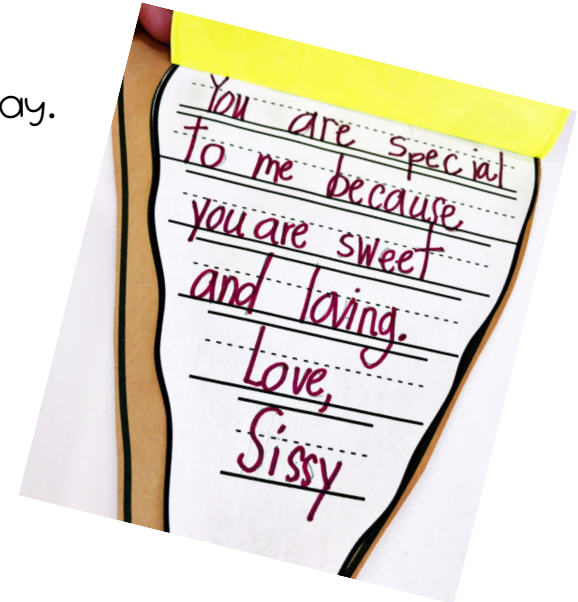 ay.
You are special
to me because
you are sweet
and loving.
Love,
Sissy